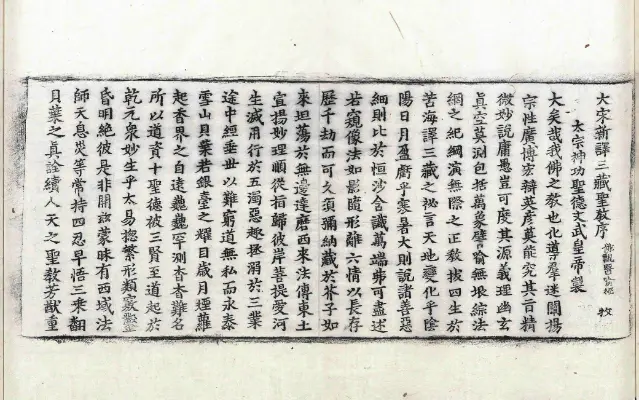 大宋新譯三藏聖教序
太宗神功聖德文武皇帝製
大矣哉我佛之教也化導羣迷闡揚
宗性廣博宏辯英彥莫能究其旨精
微妙說庸愚豈可度其源義理幽玄
真空莫測包括萬象譬喻無垠綜法
網之紀綱演無際之正教拔四生於
苦海譯三藏之祕言天地變化乎陰
陽日月盈虧乎寒暑大則說諸善惡
細則比於恒沙含識萬端弗可盡述
若窺像法如影隨形離六情以長存
歷千劫而可久須彌納藏於芥子如
來坦蕩於無邊達磨西來法傳東土
宣揚妙理順從指歸彼岸菩提愛河
生滅用行於五濁惡趣拯溺於三業
途中經垂世以難窮道無私而永泰
雪山貝葉若銀臺之耀日歲月煙蘿
起香界之自遠巍巍罕測杳杳難名
所以道資十聖德被三賢至道起於
乾元衆妙生乎太易揔繁形類竅鑿
昏明絕彼是非開茲蒙昧有西域法
師天息災等常持四忍早悟三乘翻
貝葉之真詮續人天之聖教芳猷重